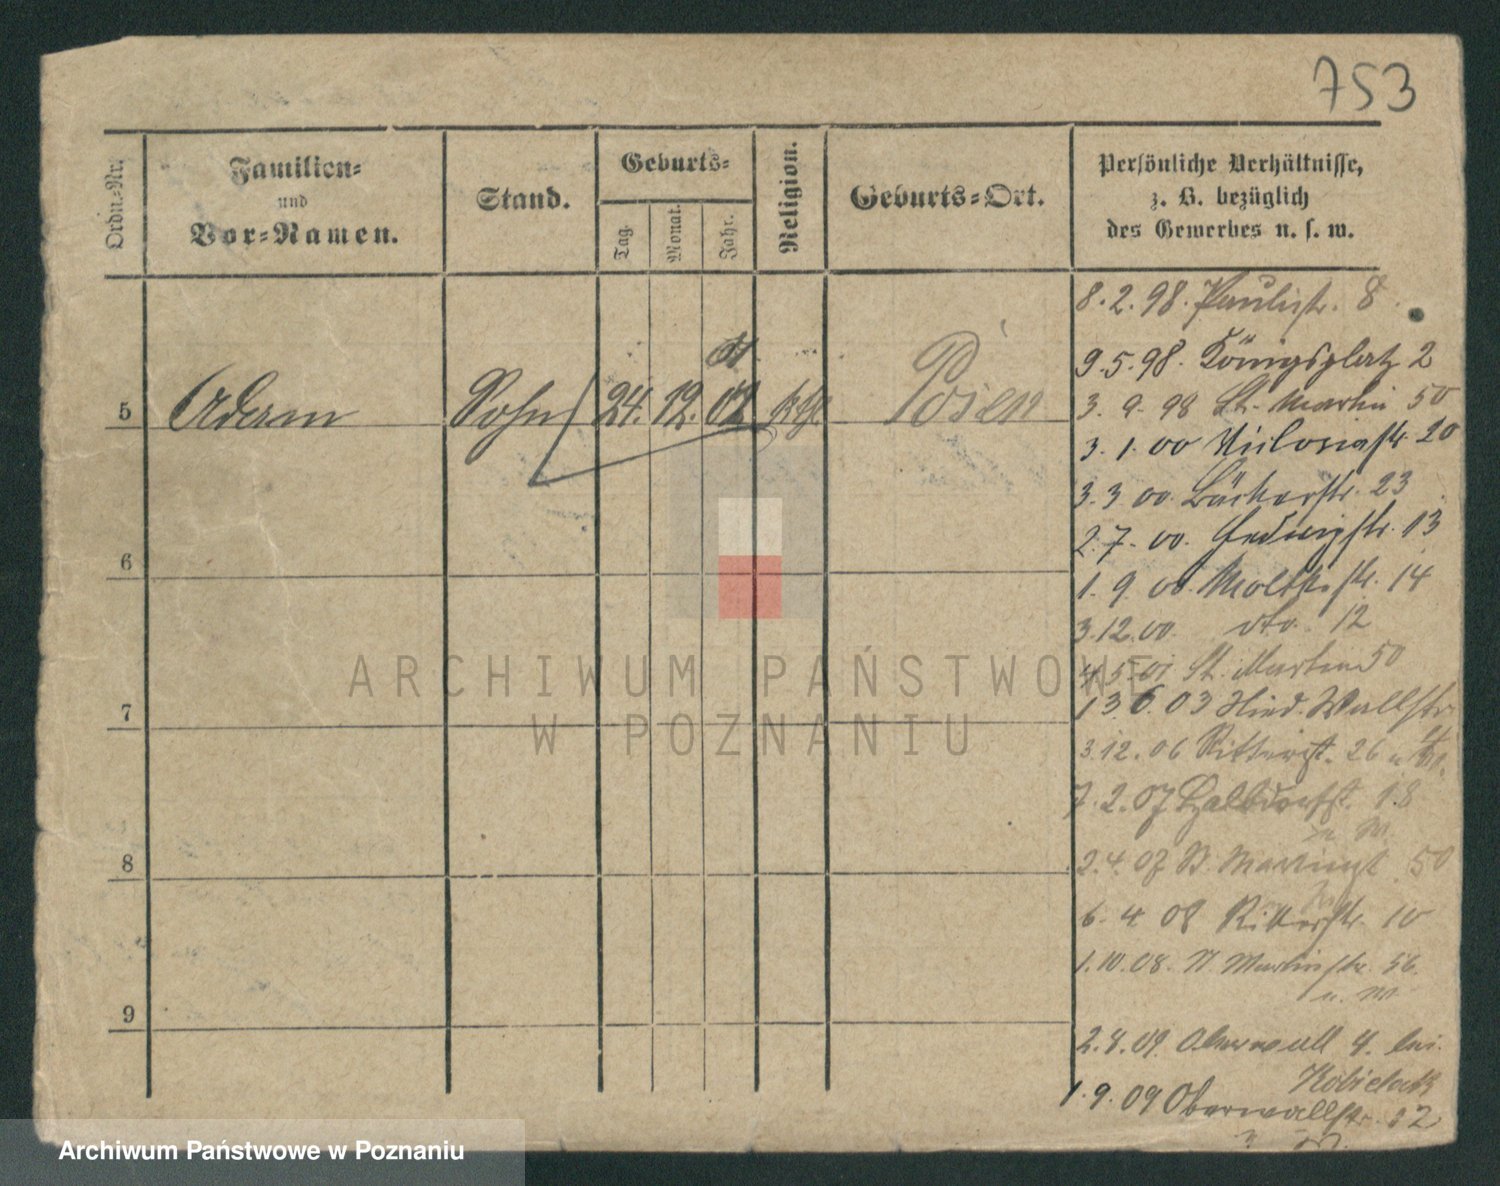 753
Ordn.-Nr.
Familien-
und
Vor-Namen.
Stand.
Geburts-
Tag.
Monat.
Jahr.
Religion.
Geburts-Ort.
Persönliche Verhältnisse,
z. B. bezüglich
des Gewerbes u. s. w.
5 Adam Sohn 24. 12. 01 kth. Posen
6
7
8
9
8. 2. 98. Paulistr. 8
9. 5. 98. Königsplatz 2
3. 9. 98 St. Martin 50
3. 1. 00 Victoriastr. 20
3. 3. 00. Bäckerstr. 23
2. 7. 00. Hedwigstr. 13
1. 9. 00. Moltkestr. 14
3. 12. 00. dto. 12
4. 5. 01 St. Martin 50
13. 6. 03 Nied. Wallstr.
3. 12. 06 Ritterst. 26 u.
7. 2. 07 Halbdorfst. 18
u. W.
2. 4. 07 St. Martinst. 50
6. 4 08 Ritterstr. 10
1. 10. 08. St. Martinstr. 56.
u. W
2. 8. 09. Oberwall 4. bei
1. 9. 09 Oberwallstr. 2
ARCHIWUM PAŃSTWOWE
W POZNANIU
Archiwum Państwowe w Poznaniu